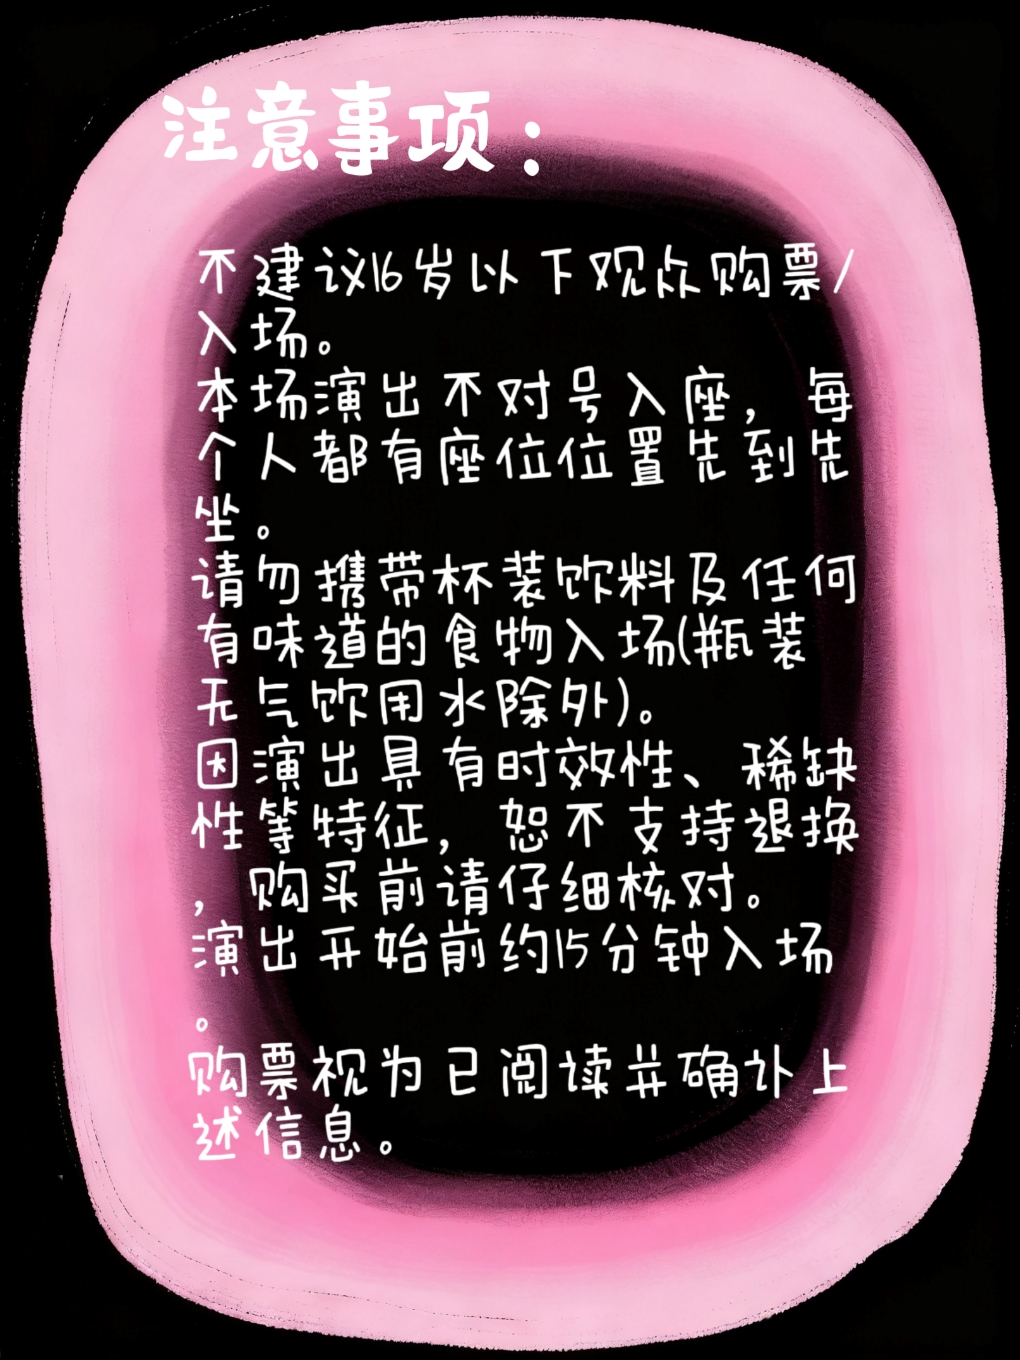 注意事项：
不建议16岁以下观众购票/
入场。
本场演出不对号入座，每
个人都有座位位置先到先
坐。
请勿携带杯装饮料及任何
有味道的食物入场(瓶装
无气饮用水除外)。
因演出具有时效性、稀缺
性等特征，恕不支持退换
，购买前请仔细核对。
演出开始前约15分钟入场
。
购票视为已阅读并确认上
述信息。